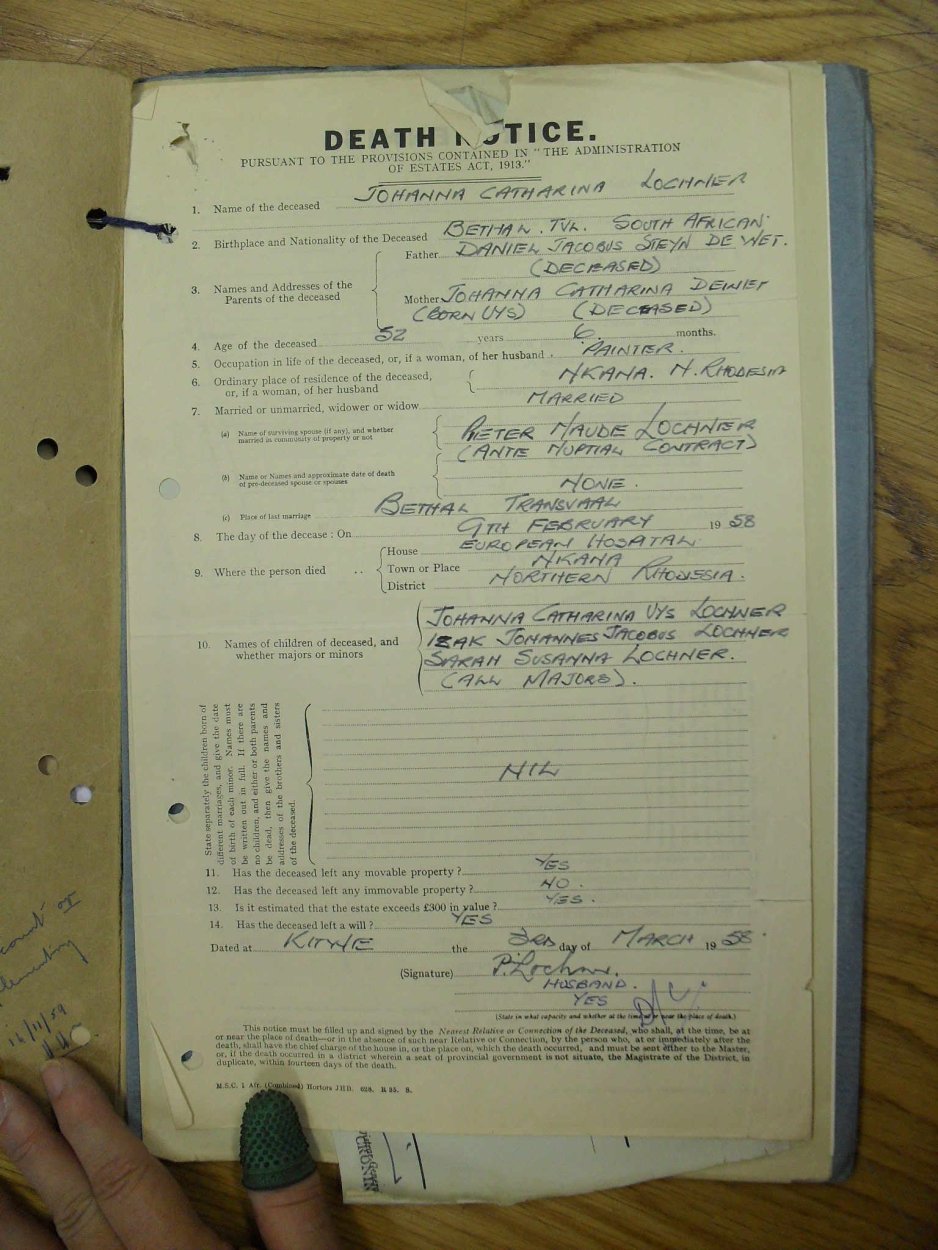 DEATH NOTICE.
PURSUANT TO THE PROVISIONS CONTAINED IN "THE ADMINISTRATION
OF ESTATES ACT, 1913."
1. Name of the deceased JOHANNA CATHARINA LOCHNER
2. Birthplace and Nationality of the Deceased BETHAL. TVL. SOUTH AFRICAN.
3. Names and Addresses of the Parents of the deceased
Father DANIEL JACOBUS STEYN DE WET.
(DECEASED)
Mother JOHANNA CATHARINA DEWET
(BORN UYS) (DECEASED)
4. Age of the deceased 52 years 6 months.
5. Occupation in life of the deceased, or, if a woman, of her husband . PAINTER.
6. Ordinary place of residence of the deceased,
or, if a woman, of her husband NKANA. N. RHODESIA
7. Married or unmarried, widower or widow MARRIED
(a) Name of surviving spouse (if any), and whether
married in community of property or not
PIETER MAUDE LOCHNER
(ANTE NUPTIAL CONTRACT)
(b) Name or Names and approximate date of death
of pre-deceased spouse or spouses
NONE.
(c) Place of last marriage BETHAL TRANSVAAL
8. The day of the decease : On 9TH FEBRUARY 19 58
9. Where the person died ..
House EUROPEAN HOSPITAL.
Town or Place NKANA
District NORTHERN RHODESIA.
10. Names of children of deceased, and
whether majors or minors
JOHANNA CATHARINA UYS LOCHNER
IZAK JOHANNES JACOBUS LOCHNER
SARAH SUSANNA LOCHNER.
(ALL MAJORS).
State separately the children born of
different marriages, and give the date
of birth of each minor. Names must
be written out in full. If there are
no children, and either or both parents
be dead, then give the names and
addresses of the brothers and sisters
of the deceased.
NIL
11. Has the deceased left any movable property ? YES
12. Has the deceased left any immovable property ? NO.
13. Is it estimated that the estate exceeds £300 in value ? YES.
14. Has the deceased left a will ? YES
Dated at KITWE the 3RD day of MARCH 19 58.
(Signature) P. Lochner.
HUSBAND.
YES
(State in what capacity and whether at the time at or near the place of death.)
This notice must be filled up and signed by the Nearest Relative or Connection of the Deceased, who shall, at the time, be at
or near the place of death—or in the absence of such near Relative or Connection, by the person who, at or immediately after the
death, shall have the chief charge of the house in, or the place on, which the death occurred, and must be sent either to the Master,
or, if the death occurred in a district wherein a seat of provincial government is not situate, the Magistrate of the District, in
duplicate, within fourteen days of the death.
M.S.C. 1 Afr. (Combined) Hortors JHB.
16/11/59